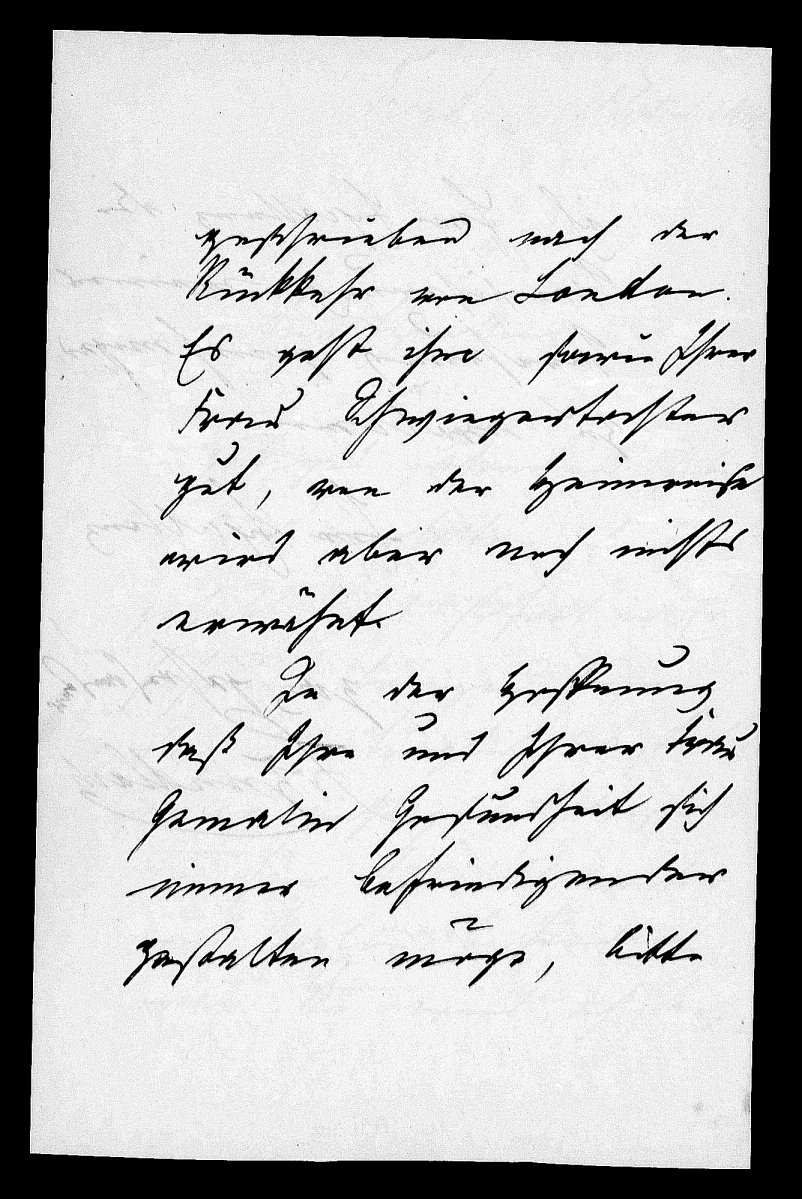 geschrieben nach der
Rückkehr von London.
Es geht ihr sowie Ihrer
Frau Schwiegertochter
gut, von der Heimreise
wird aber noch nichts
erwähnt.
In der Hoffnung
daß Ihre und Ihrer Frau
Gemalin Gesundheit sich
immer befriedigender
gestalten möge, bitte